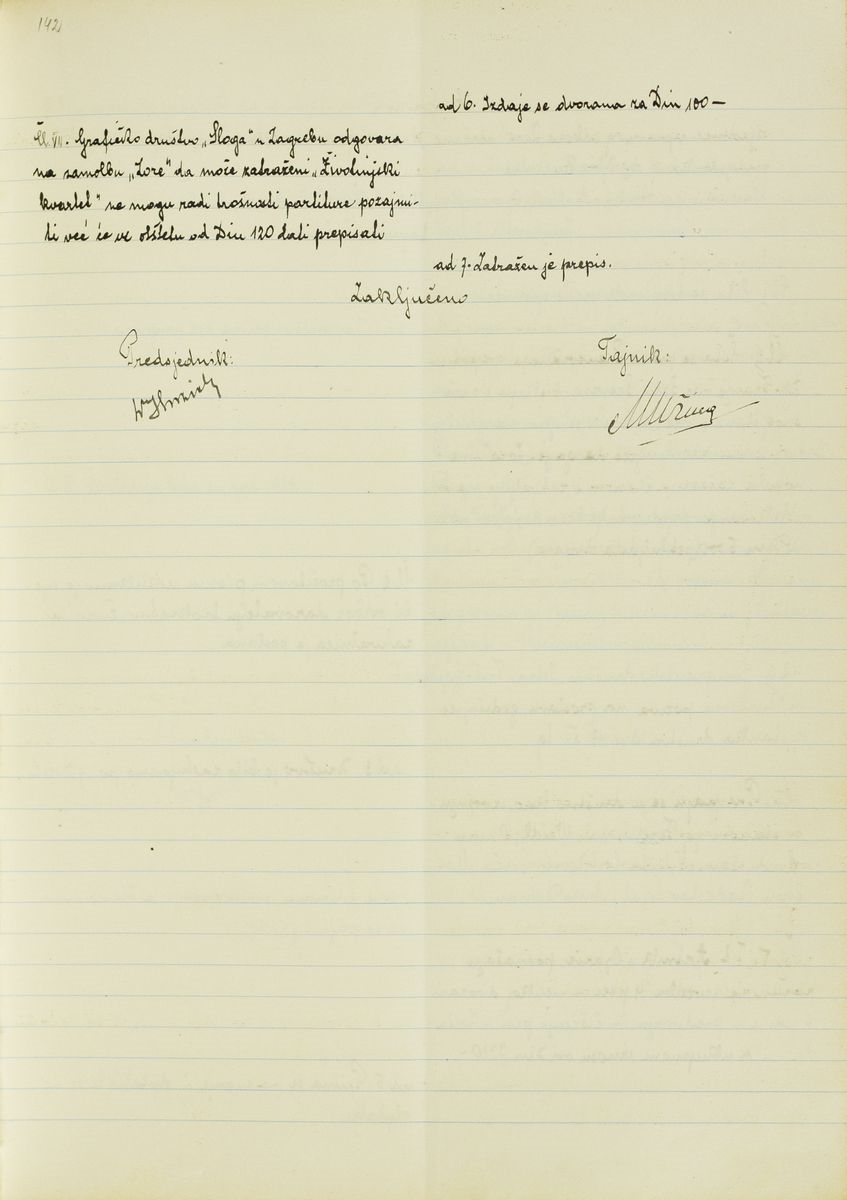 142
ad 6. Izdaje se dvorana za Din 100—
Čl. VII. Grafičko društvo „Sloga" u Zagrebu odgovara
na zamolbu „Zore" da može zatraženi „Životinjski
kvartet" ne mogu radi trošnosti partiture pozajmi-
ti već će uz otštetu od Din 120 dati prepisati
ad 7. Zatražen je prepis.
Zaključeno
Predsjednik:
Tajnik: